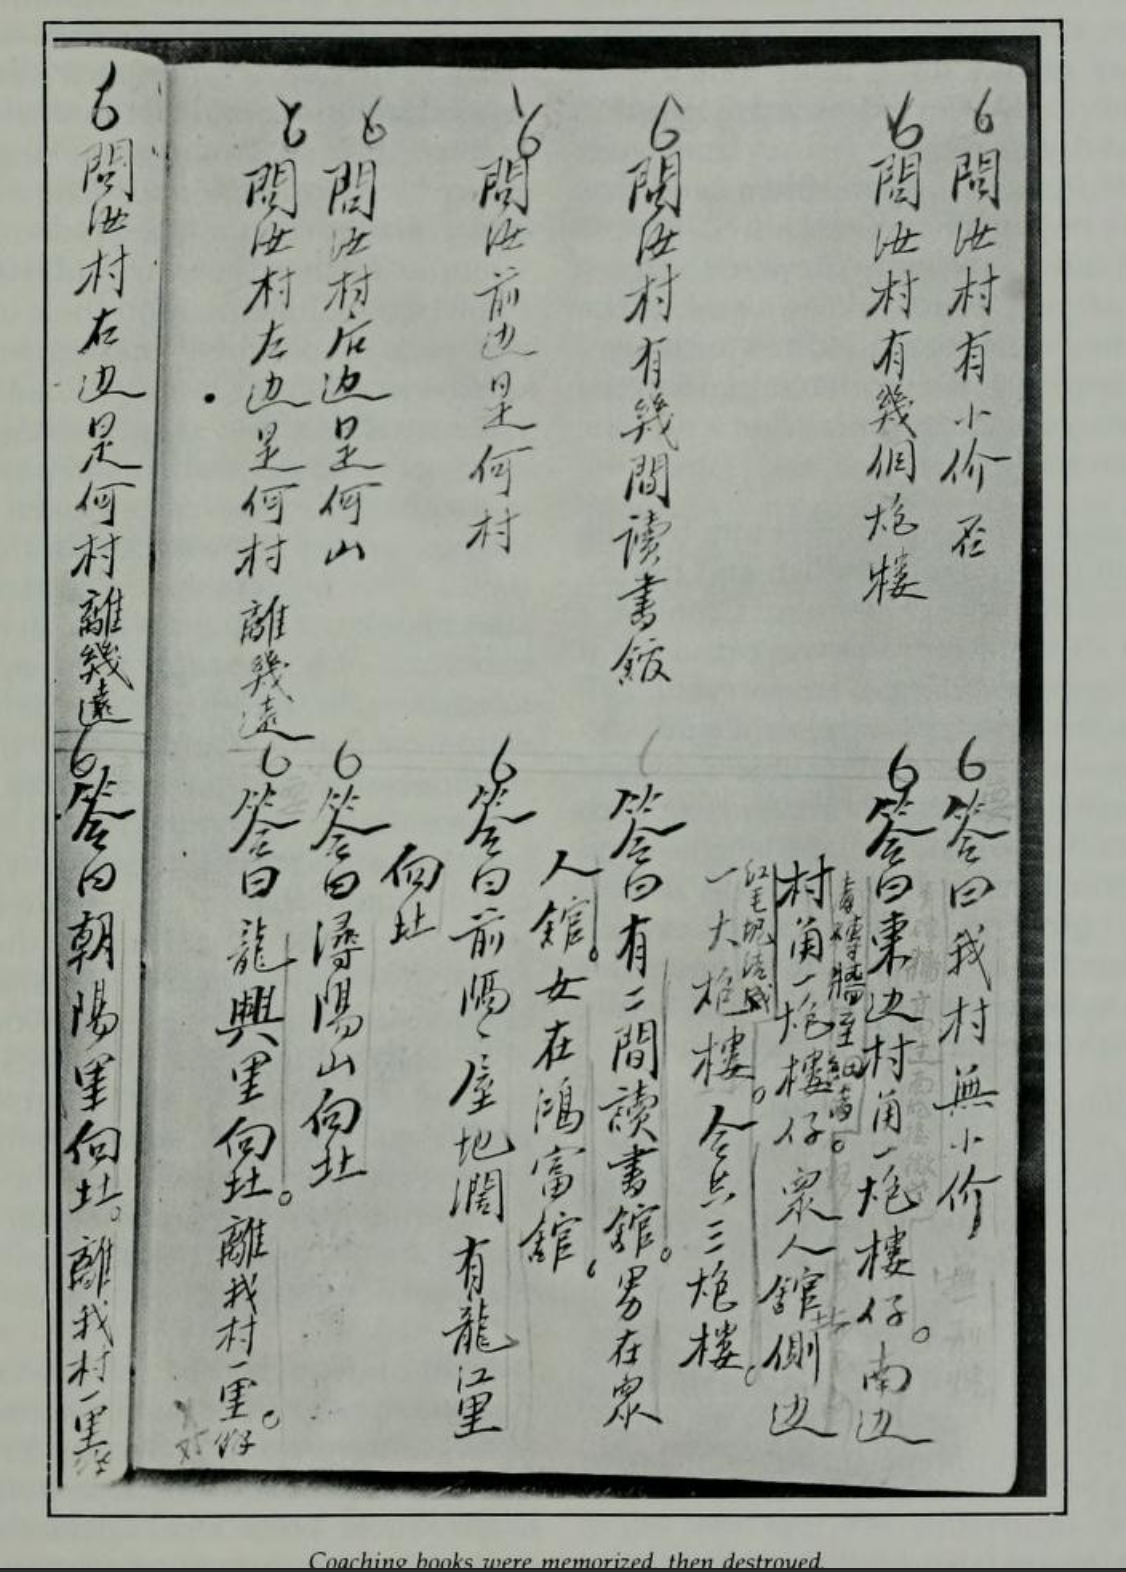 問汝村有小价否
答曰我村無小价
問汝村有幾個炮楼
答曰東边村角一炮樓仔。南边
村角一炮樓仔。眾人舘側边
一大炮樓。合共三炮楼。
問汝村有幾間讀書舘
答曰有二間讀書舘。男在眾
人舘。女在鴻富舘。
問汝前边是何村
答曰前隔、屋地濶有龍江里
向北
問汝村后边是何山
答曰潯陽山向北
問汝村左边是何村 離幾遠
答曰龍興里向北。離我村一里。
問汝村右边是何村 離幾遠
答曰朝陽里向北。離我村一里
Coaching books were memorized, then destroyed.